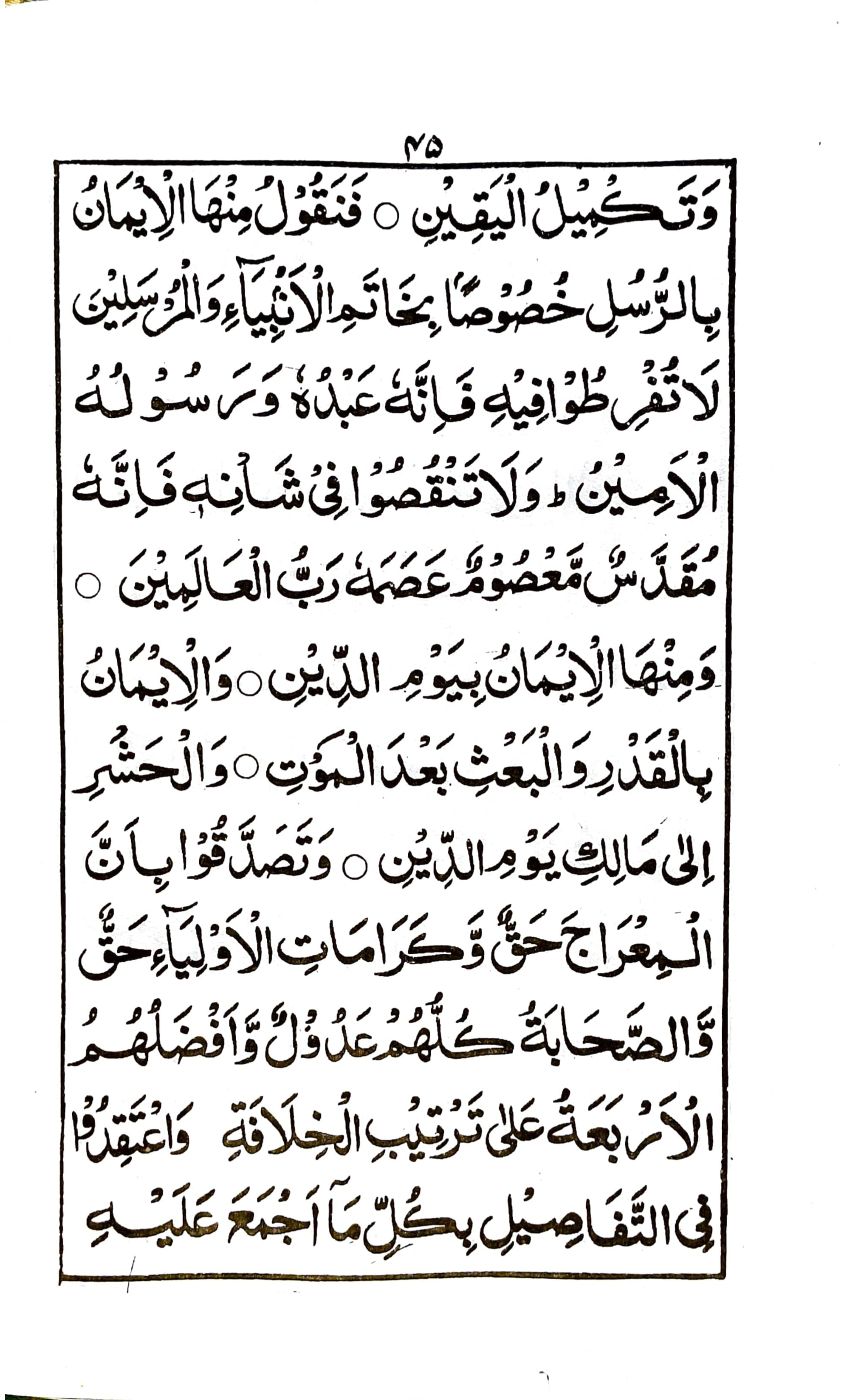 ۴۵
وَتَكْمِيْلُ الْيَقِيْنِ ○ فَنَقُوْلُ مِنْهَا الْاِيْمَانُ
بِالرُّسُلِ خُصُوْصًا بِخَاتَمِ الْاَنْبِيَآءِ وَالْمُرْسَلِيْنَ
لَا تُفْرِطُوْا فِيْهِ فَاِنَّهٗ عَبْدُهٗ وَرَسُوْلُهُ
الْاَمِيْنُ ط وَلَا تَنْقُصُوْا فِيْ شَاْنِهٖ فَاِنَّهٗ
مُقَدَّسٌ مَّعْصُوْمٌ عَصَمَهٗ رَبُّ الْعَالَمِيْنَ ○
وَمِنْهَا الْاِيْمَانُ بِيَوْمِ الدِّيْنِ ○ وَالْاِيْمَانُ
بِالْقَدْرِ وَالْبَعْثِ بَعْدَ الْمَوْتِ ○ وَالْحَشْرِ
اِلٰى مَالِكِ يَوْمِ الدِّيْنِ ○ وَتَصَدَّقُوْا بِاَنَّ
الْمِعْرَاجَ حَقٌّ وَّكَرَامَاتِ الْاَوْلِيَآءِ حَقٌّ
وَّالصَّحَابَةُ كُلُّهُمْ عَدُوْلٌ وَّاَفْضَلُهُمُ
الْاَرْبَعَةُ عَلٰى تَرْتِيْبِ الْخِلَافَةِ وَاعْتَقِدُوْا
فِى التَّفَاصِيْلِ بِكُلِّ مَآ اَجْمَعَ عَلَيْهِ